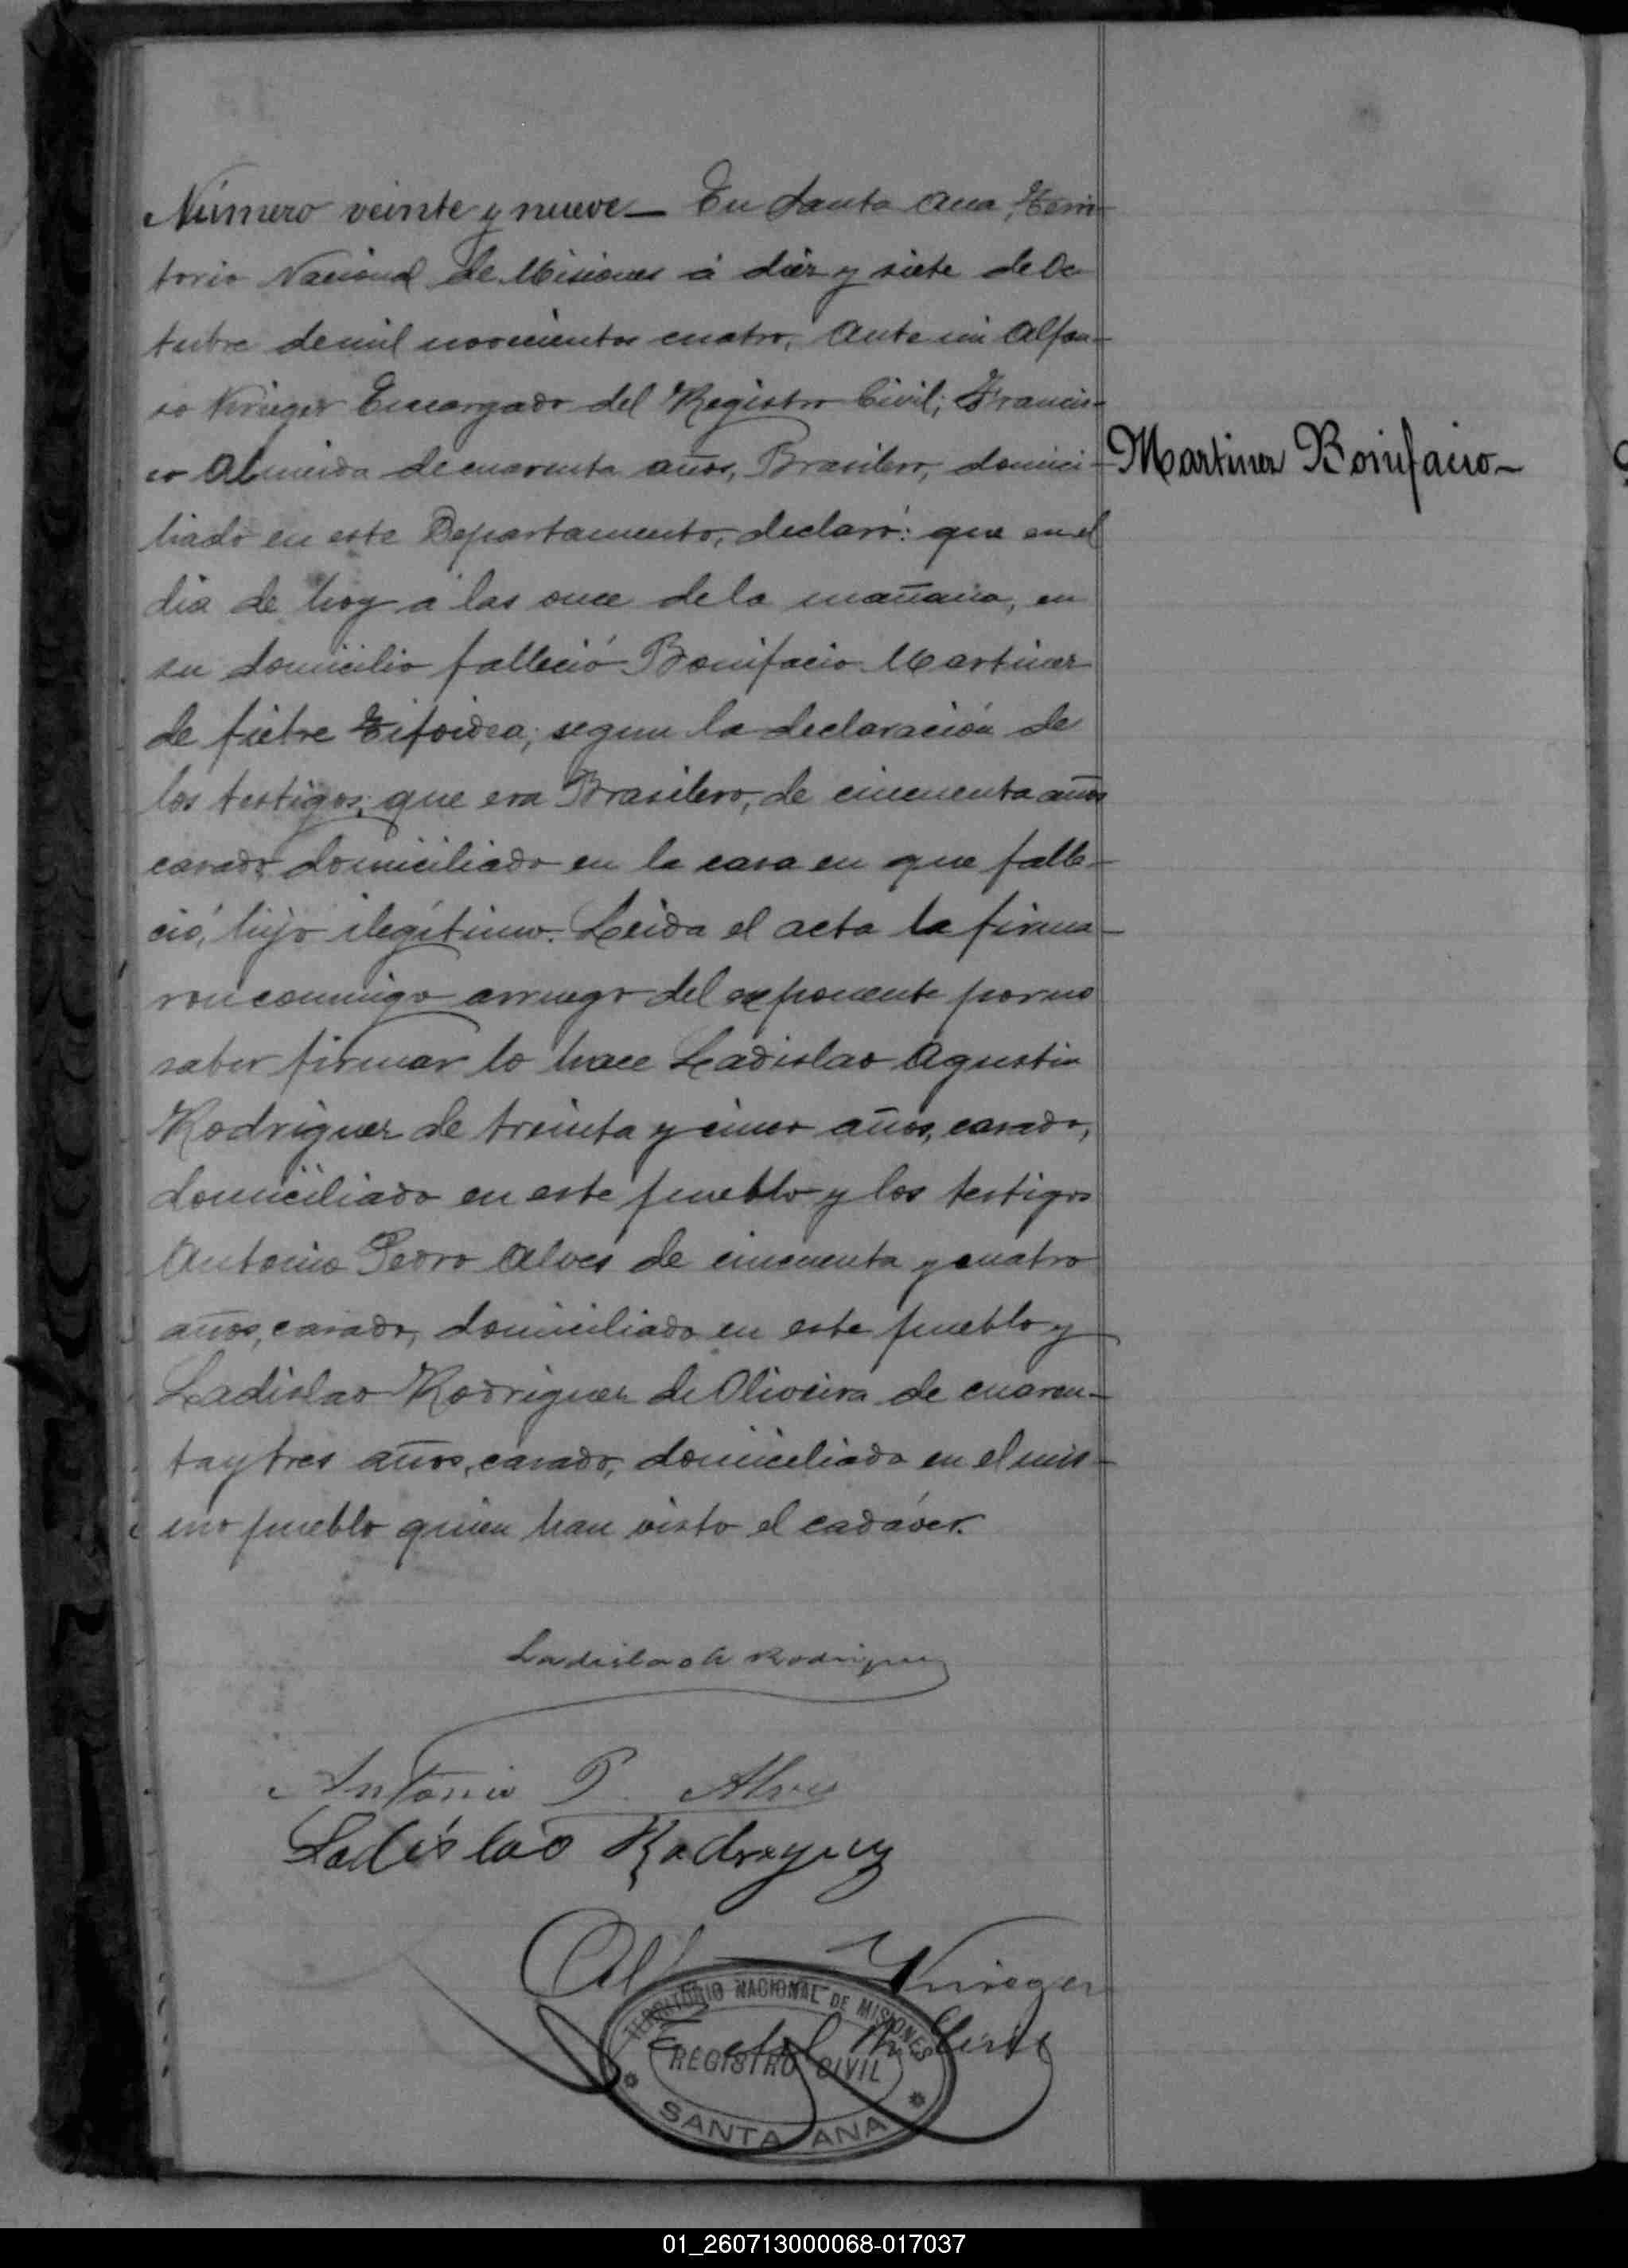 Número veinte y nueve_ En Santa Ana, Terri-
torio Nacional de Misiones á diez y siete de Oc
tubre de mil novecientos cuatro, Ante mi Alfon-
so Krieger Encargado del Registro Civil; Francis-
co Almeida de cuarenta años, Brasilero, domici-
Martinez Bonifacio-
liado en este Departamento, declaró: que en el
dia de hoy a las once de la mañana, en
su domicilio falleció Bonifacio Martinez
de fiebre Tifoidea; segun la declaración de
los testigos; que era Brasilero, de cincuenta años
casado, domiciliado en la casa en que falle-
ció, hijo ilegítimo. Leida el acta la firma-
ron conmigo arruego del exponente por no
saber firmar lo hace Ladislao Agustin
Rodriguez de treinta y cinco años, casado,
domiciliado en este pueblo y los testigos
Antonio Pedro Alves de cincuenta y cuatro
años, casado, domiciliado en este pueblo y
Ladislao Rodriguez de Oliveira de cuaren-
ta y tres años, casado, domiciliado en el mis-
mo pueblo quien han visto el cadáver.
Ladislao A Rodriguez
Antonio P. Alves
Ladislao Rodriguez
Krieger
TERRITORIO NACIONAL DE MISIONES
REGISTRO CIVIL
SANTA ANA
01_260713000068-017037